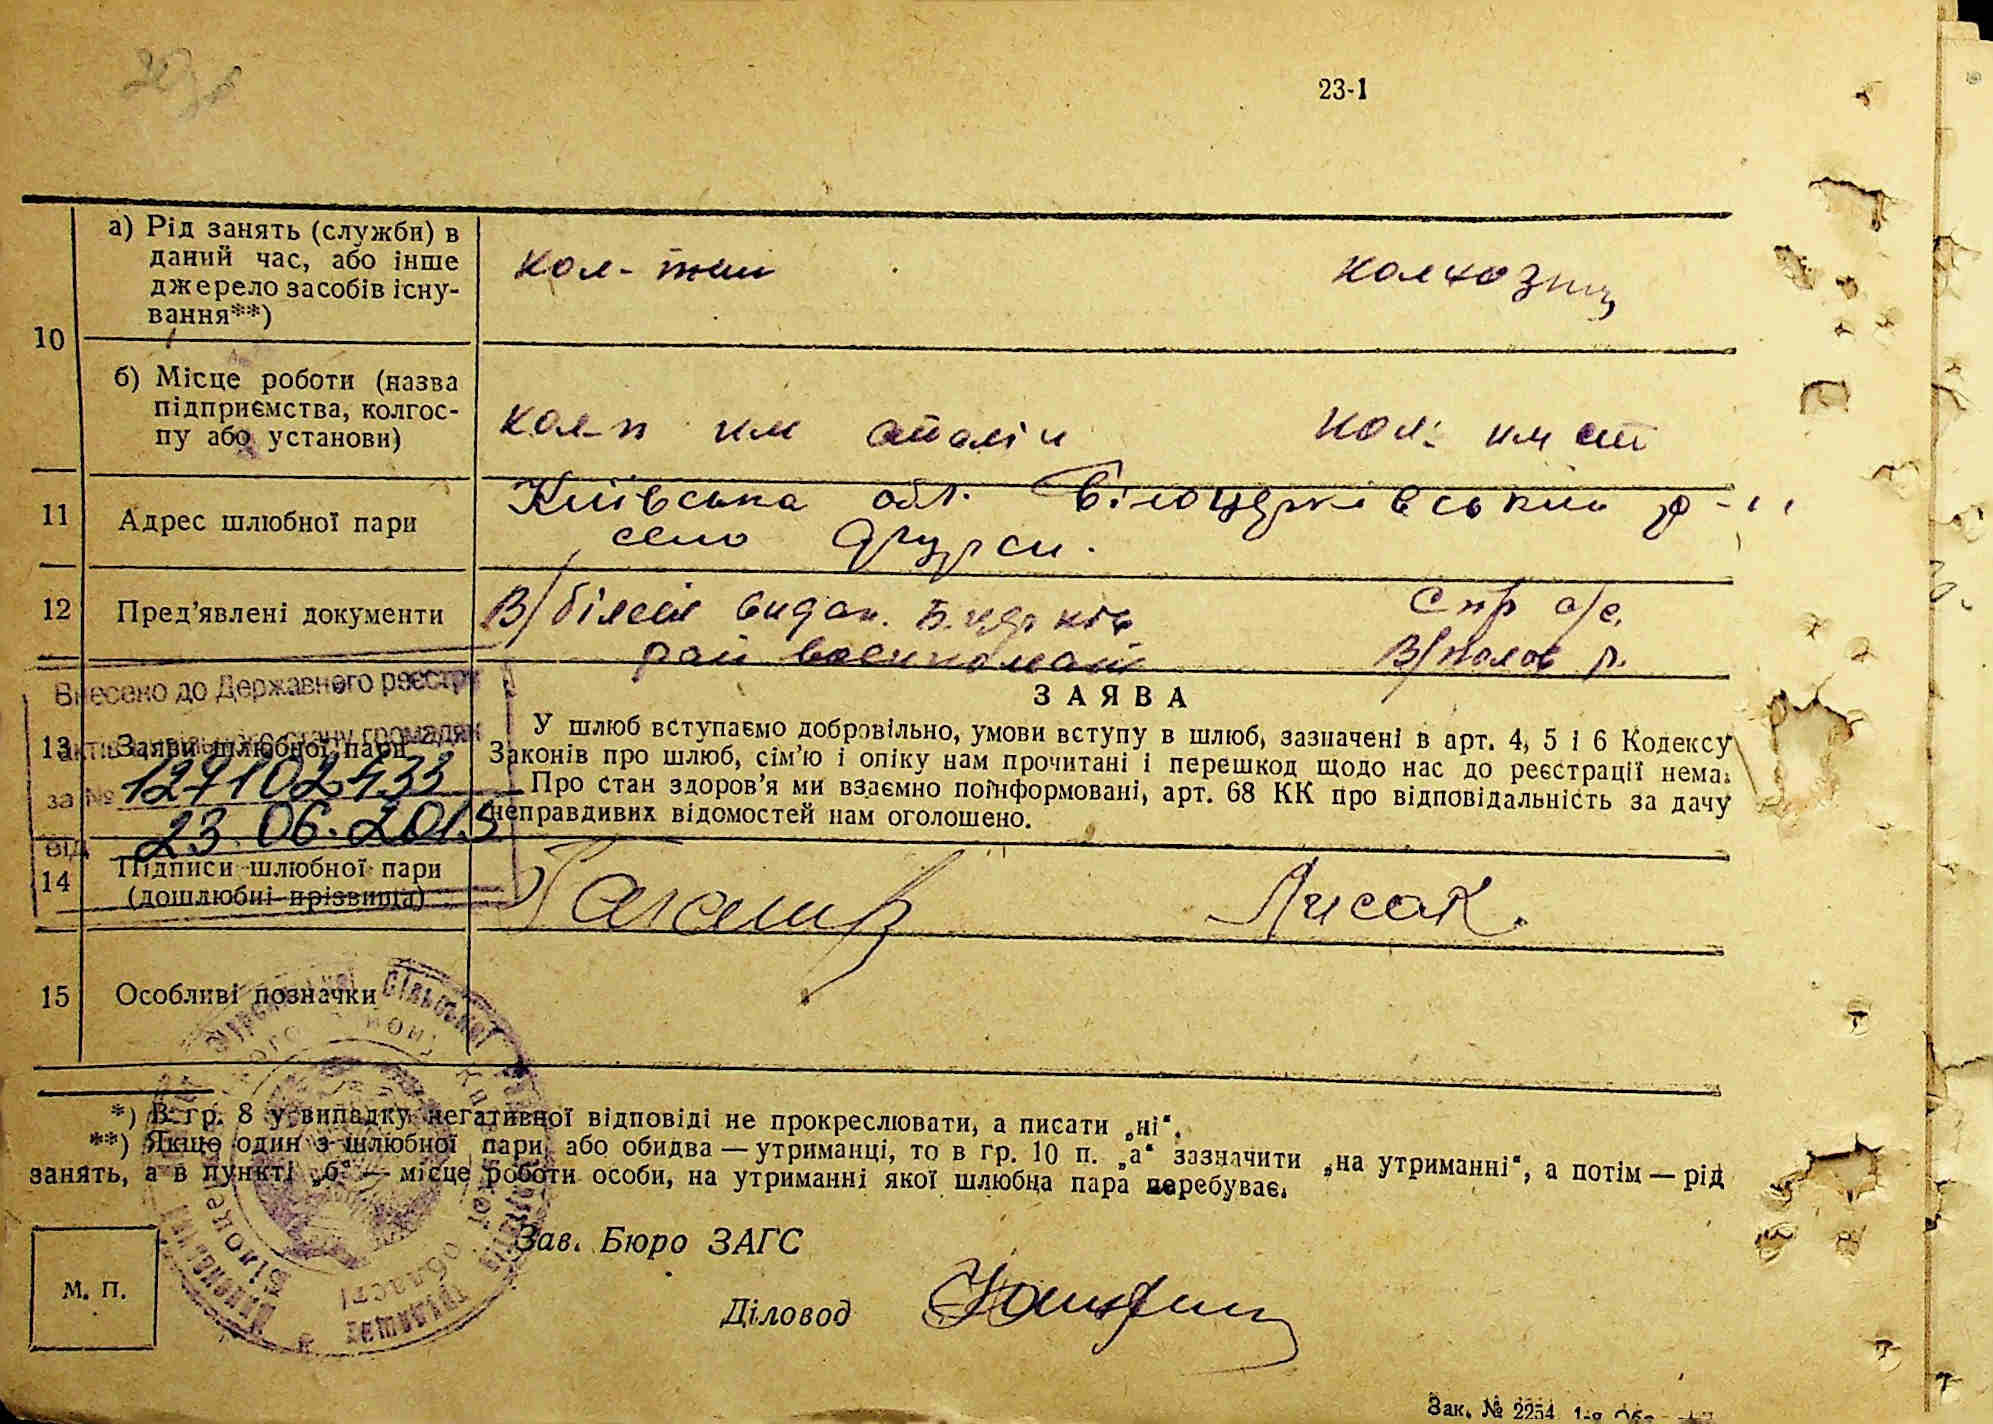 23-1
10
а) Рід занять (служби) в
даний час, або інше
джерело засобів існу-
вання**)
колхозниц
б) Місце роботи (назва
підприємства, колгос-
пу або установи)
кол-п им сталін
кол: им ст
11
Адрес шлюбної пари
Київська обл. Білоцерківський р-н
село Фурси.
12
Пред'явлені документи
В/білет видан. Б.церків
рай военкомат
Спр с/с.
Внесено до Державного реєстру
актів цивільного стану громадян
за №
127102433
від
23.06.2015
13
Заяви шлюбної пари
ЗАЯВА
У шлюб вступаємо добровільно, умови вступу в шлюб, зазначені в арт. 4, 5 і 6 Кодексу
Законів про шлюб, сім'ю і опіку нам прочитані і перешкод щодо нас до реєстрації нема.
Про стан здоров'я ми взаємно поінформовані, арт. 68 КК про відповідальність за дачу
неправдивих відомостей нам оголошено.
14
Підписи шлюбної пари
(дошлюбні прізвища)
Лисак.
15
Особливі позначки
*) В гр. 8 у випадку негативної відповіді не прокреслювати, а писати „ні“.
**) Якщо один з шлюбної пари або обидва — утриманці, то в гр. 10 п. „а“ зазначити „на утриманні“, а потім — рід
занять, а в пункті „б“ — місце роботи особи, на утриманні якої шлюбна пара перебуває.
Зав. Бюро ЗАГС
М. П.
Діловод
Зак. № 2254